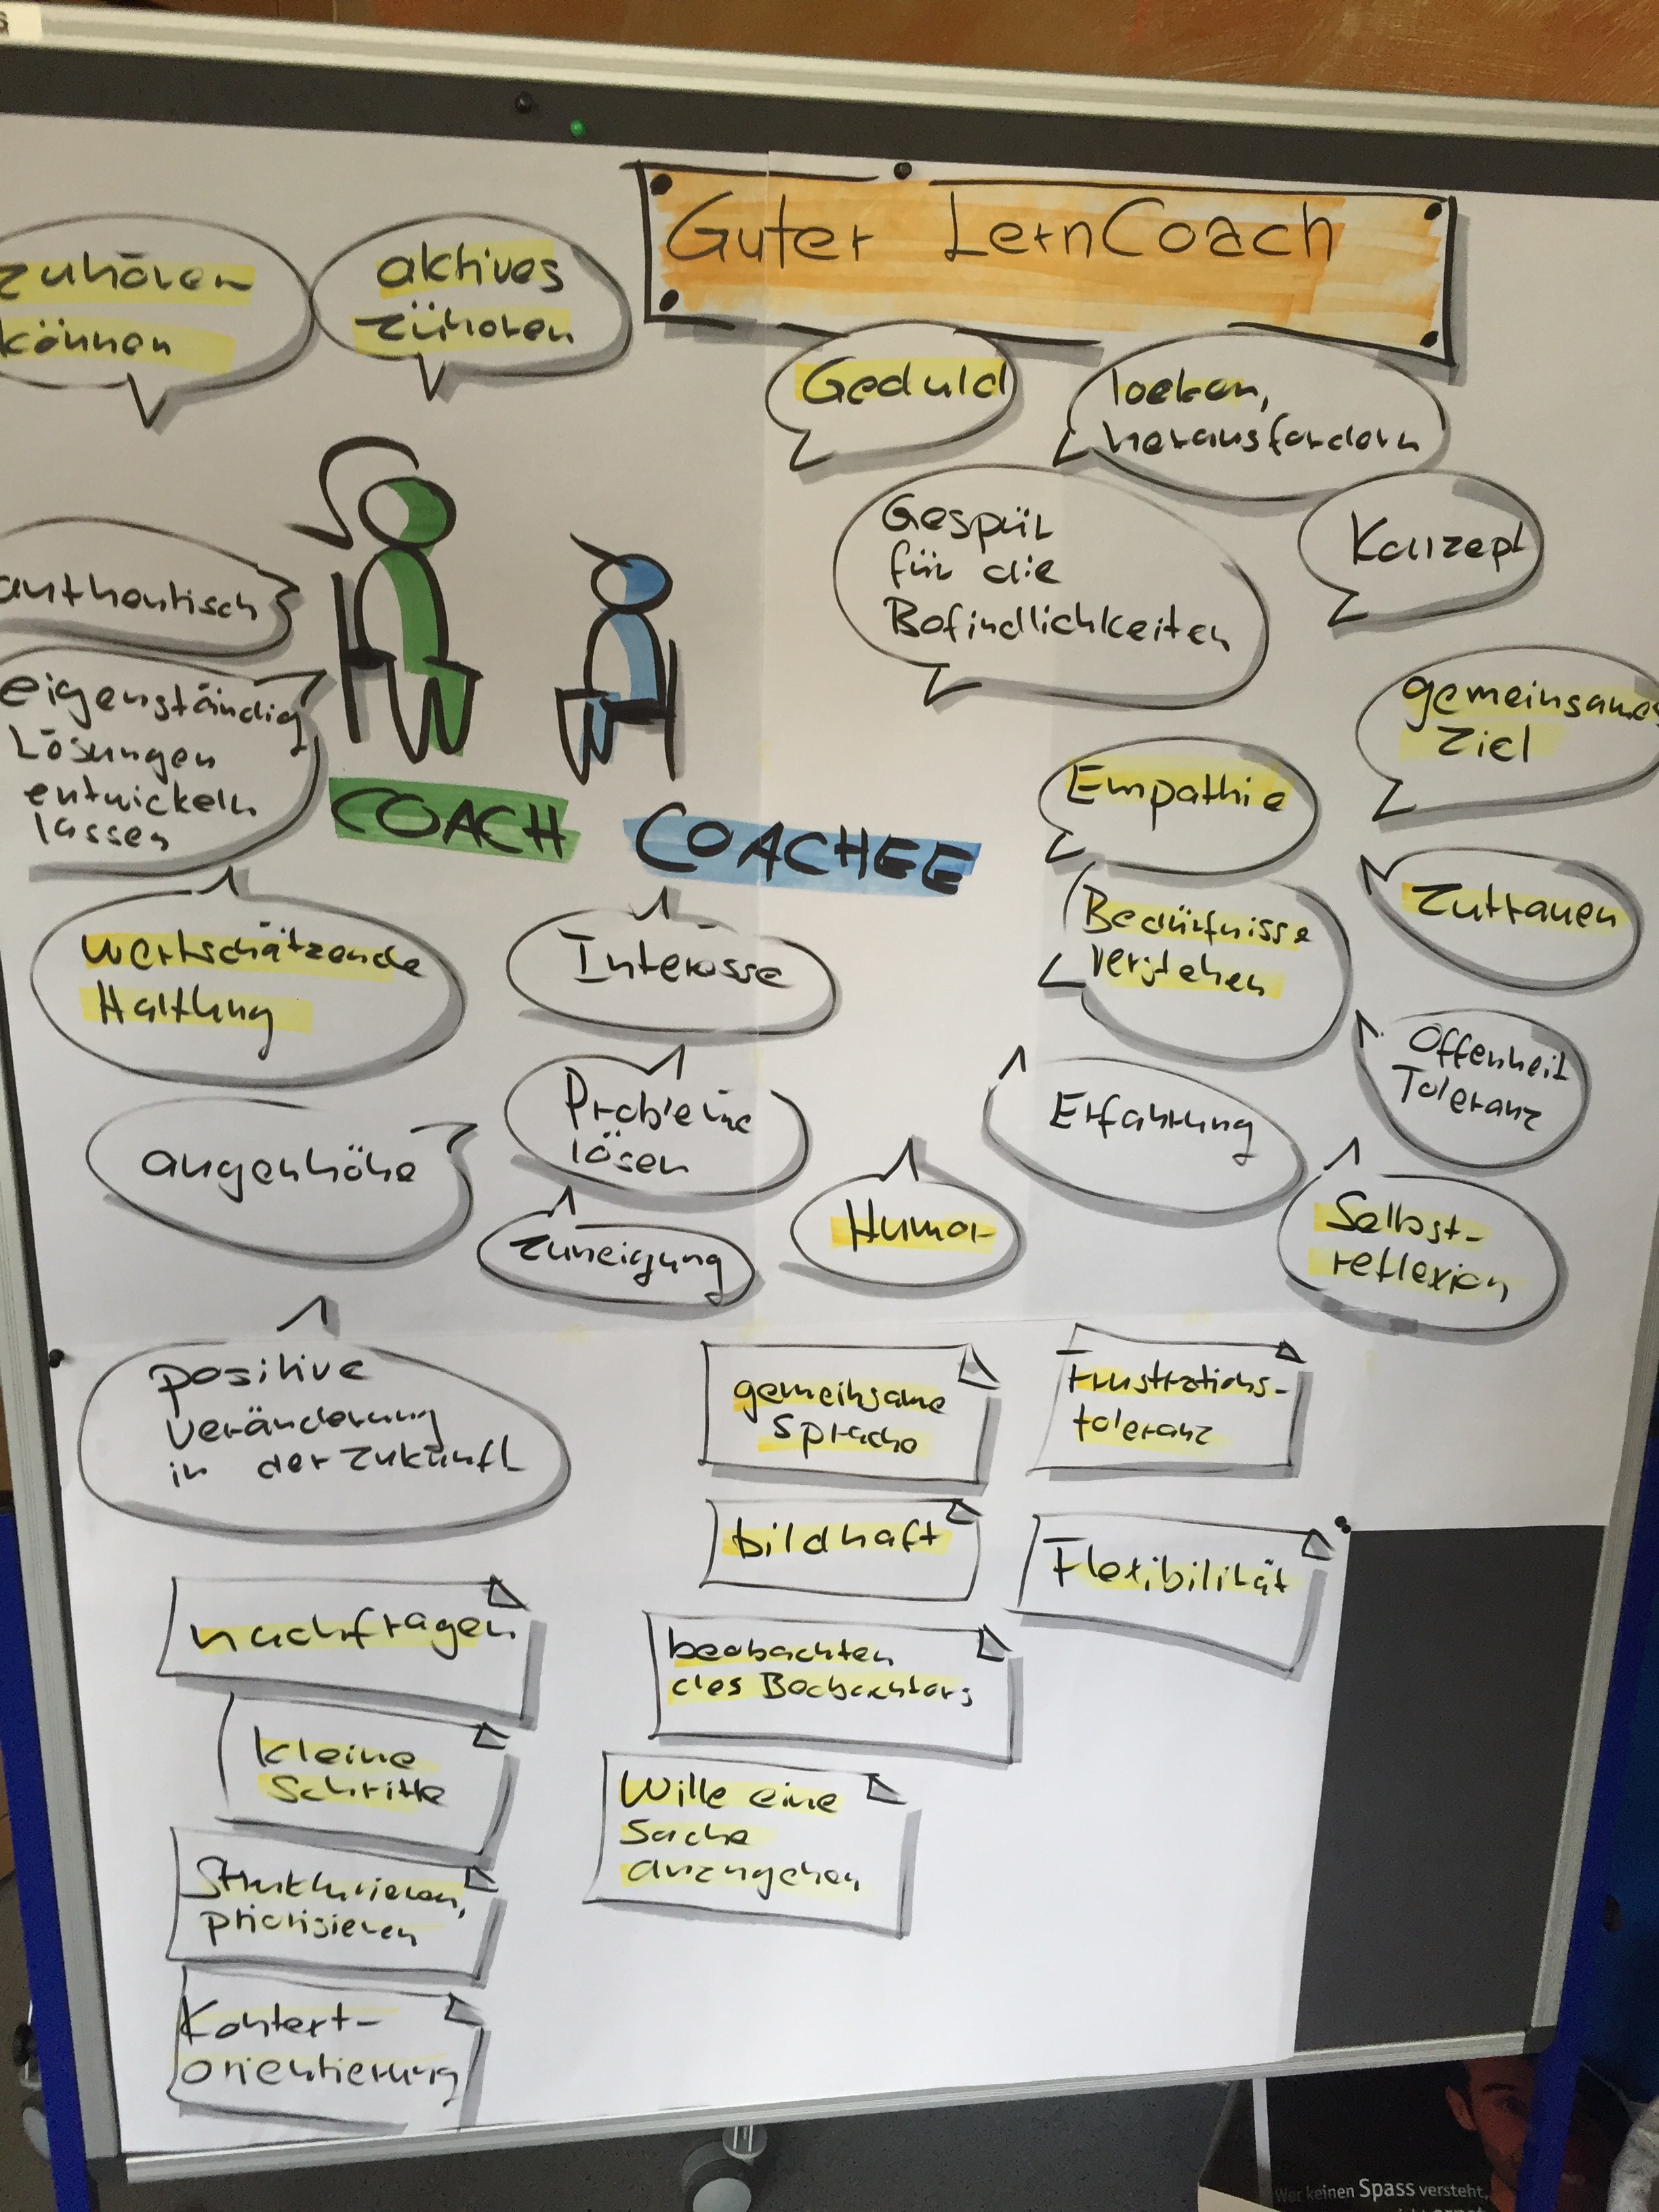 Guter LernCoach
zuhören
können
aktives
zuhören
Geduld
locken,
herausfordern
Gespür
für die
Befindlichkeiten
Konzept
authentisch
eigenständig
Lösungen
entwickeln
lassen
COACH
COACHEE
gemeinsames
Ziel
Empathie
Zutrauen
Bedürfnisse
verstehen
wertschätzende
Haltung
Interesse
Offenheit
Toleranz
Probleme
lösen
Erfahrung
augenhöhe
Zuneigung
Humor
Selbst-
reflexion
positive
veränderung
in der Zukunft
gemeinsame
Sprache
Frustrations-
toleranz
bildhaft
Flexibilität
nachfragen
beobachten
des Beobachters
kleine
Schritte
Wille eine
Sache
anzugehen
Strukturieren,
priorisieren
Kontext-
orientierung
Wer keinen Spass versteht,